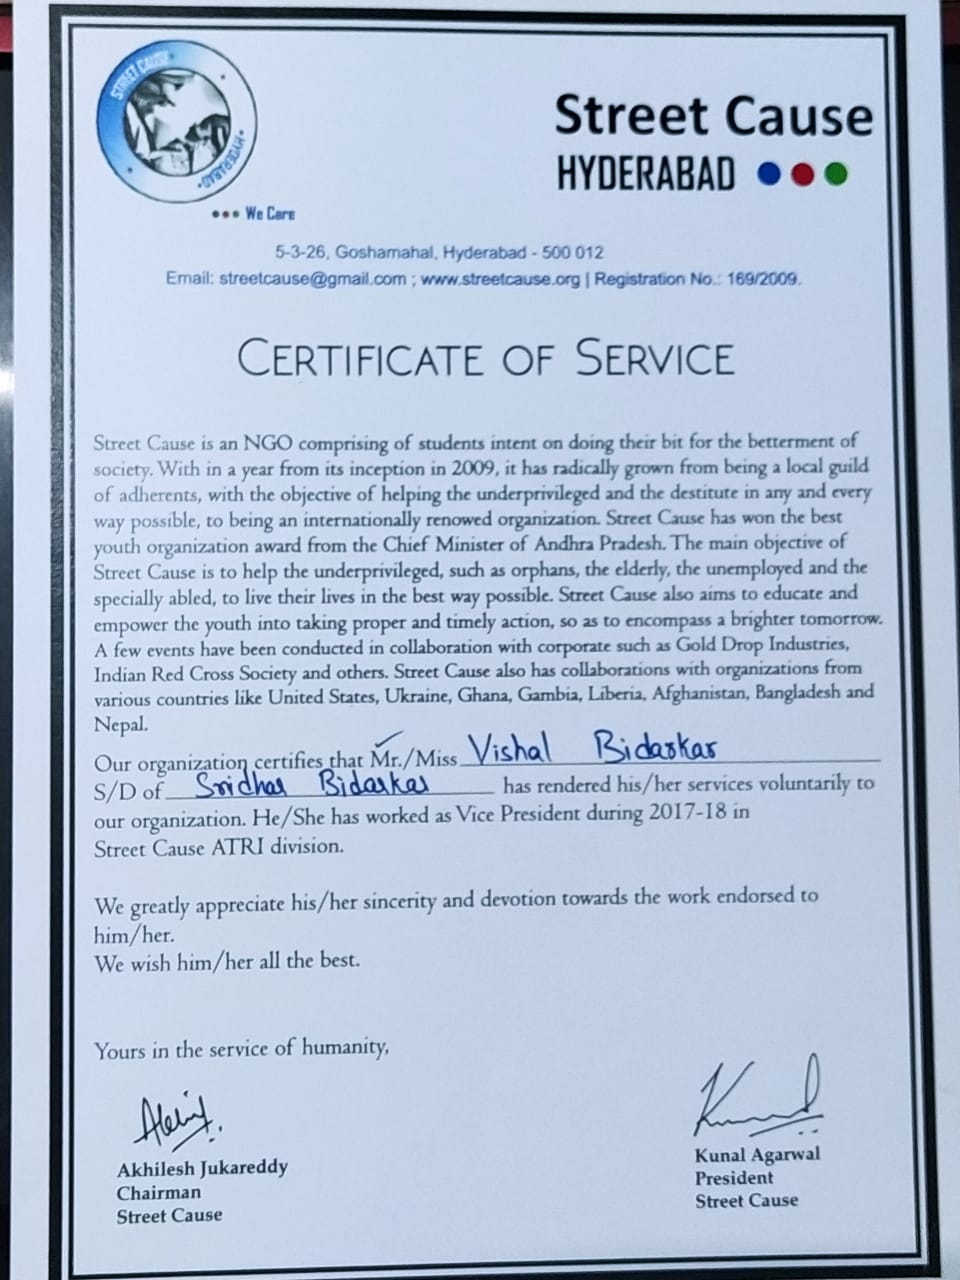 STREET CAUSE
HYDERABAD
We Care
Street Cause
HYDERABAD
5-3-26, Goshamahal, Hyderabad - 500 012
Email: streetcause@gmail.com ; www.streetcause.org | Registration No.: 169/2009.
CERTIFICATE OF SERVICE
Street Cause is an NGO comprising of students intent on doing their bit for the betterment of
society. With in a year from its inception in 2009, it has radically grown from being a local guild
of adherents, with the objective of helping the underprivileged and the destitute in any and every
way possible, to being an internationally renowed organization. Street Cause has won the best
youth organization award from the Chief Minister of Andhra Pradesh. The main objective of
Street Cause is to help the underprivileged, such as orphans, the elderly, the unemployed and the
specially abled, to live their lives in the best way possible. Street Cause also aims to educate and
empower the youth into taking proper and timely action, so as to encompass a brighter tomorrow.
A few events have been conducted in collaboration with corporate such as Gold Drop Industries,
Indian Red Cross Society and others. Street Cause also has collaborations with organizations from
various countries like United States, Ukraine, Ghana, Gambia, Liberia, Afghanistan, Bangladesh and
Nepal.
Our organization certifies that Mr./Miss Vishal Bidarkar
S/D of Sridhar Bidarkar has rendered his/her services voluntarily to
our organization. He/She has worked as Vice President during 2017-18 in
Street Cause ATRI division.
We greatly appreciate his/her sincerity and devotion towards the work endorsed to
him/her.
We wish him/her all the best.
Yours in the service of humanity,
Akhilesh Jukareddy
Chairman
Street Cause
Kunal Agarwal
President
Street Cause